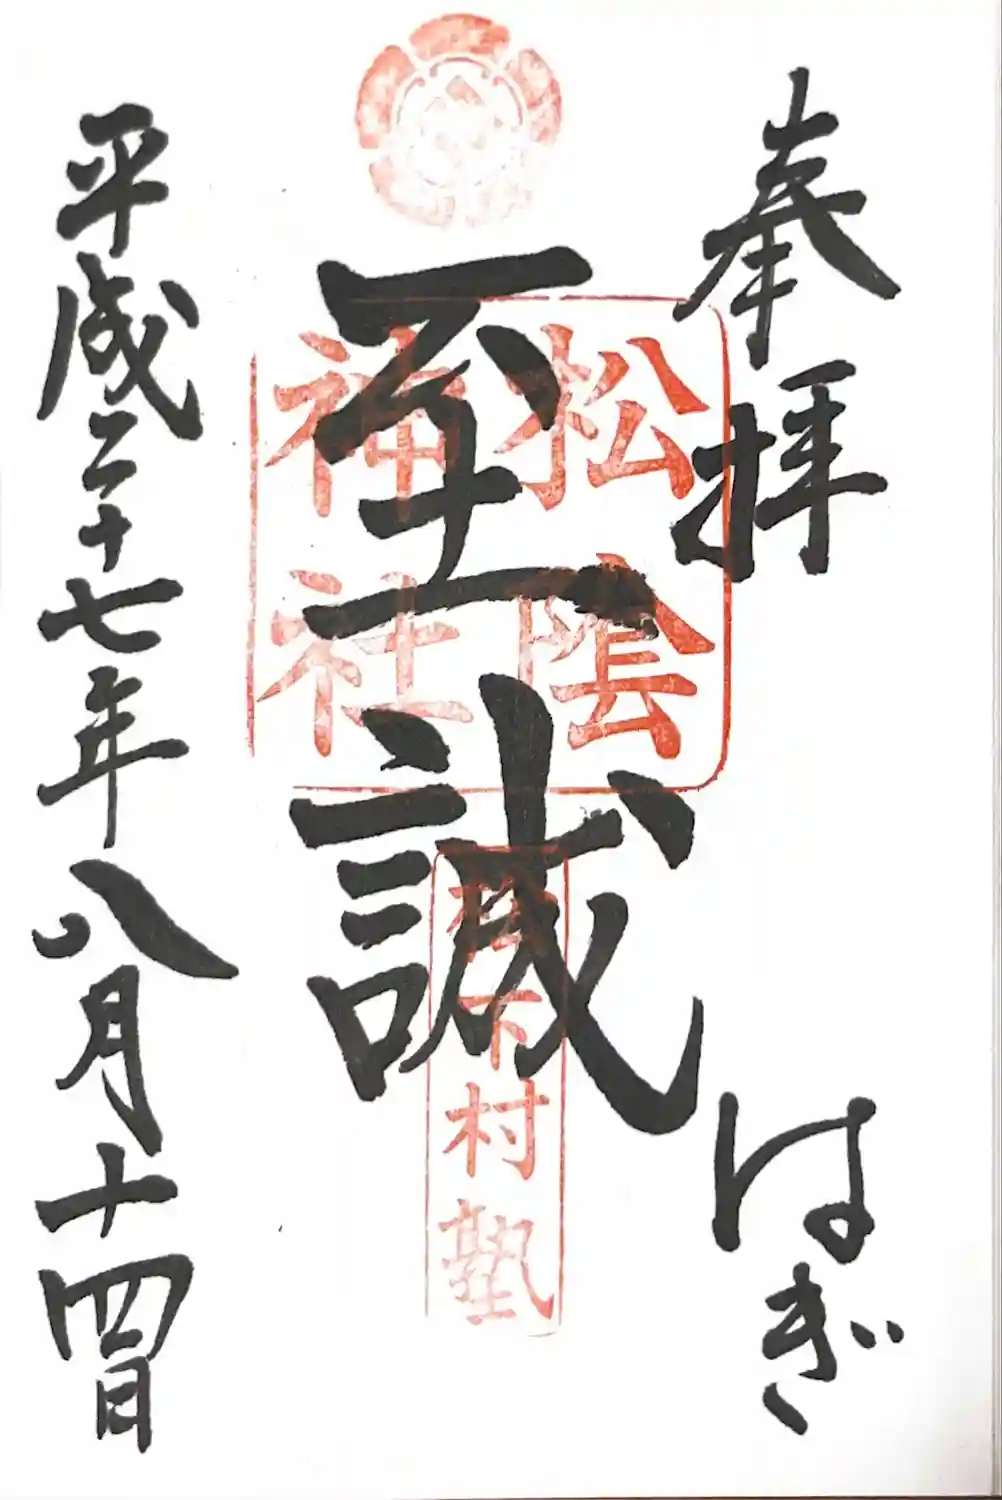 奉拝
はぎ
至誠
松陰
神社
松下村塾
平成二十七年八月十四日